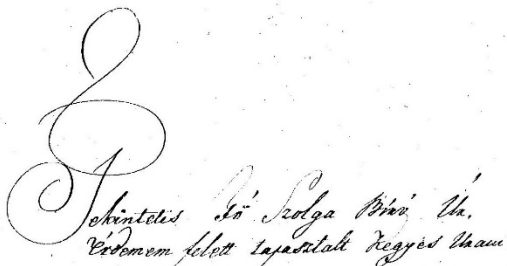 Tekintetes Fő Szolga Biró Úr.
Érdemem felett tapasztalt Kegyes Uram